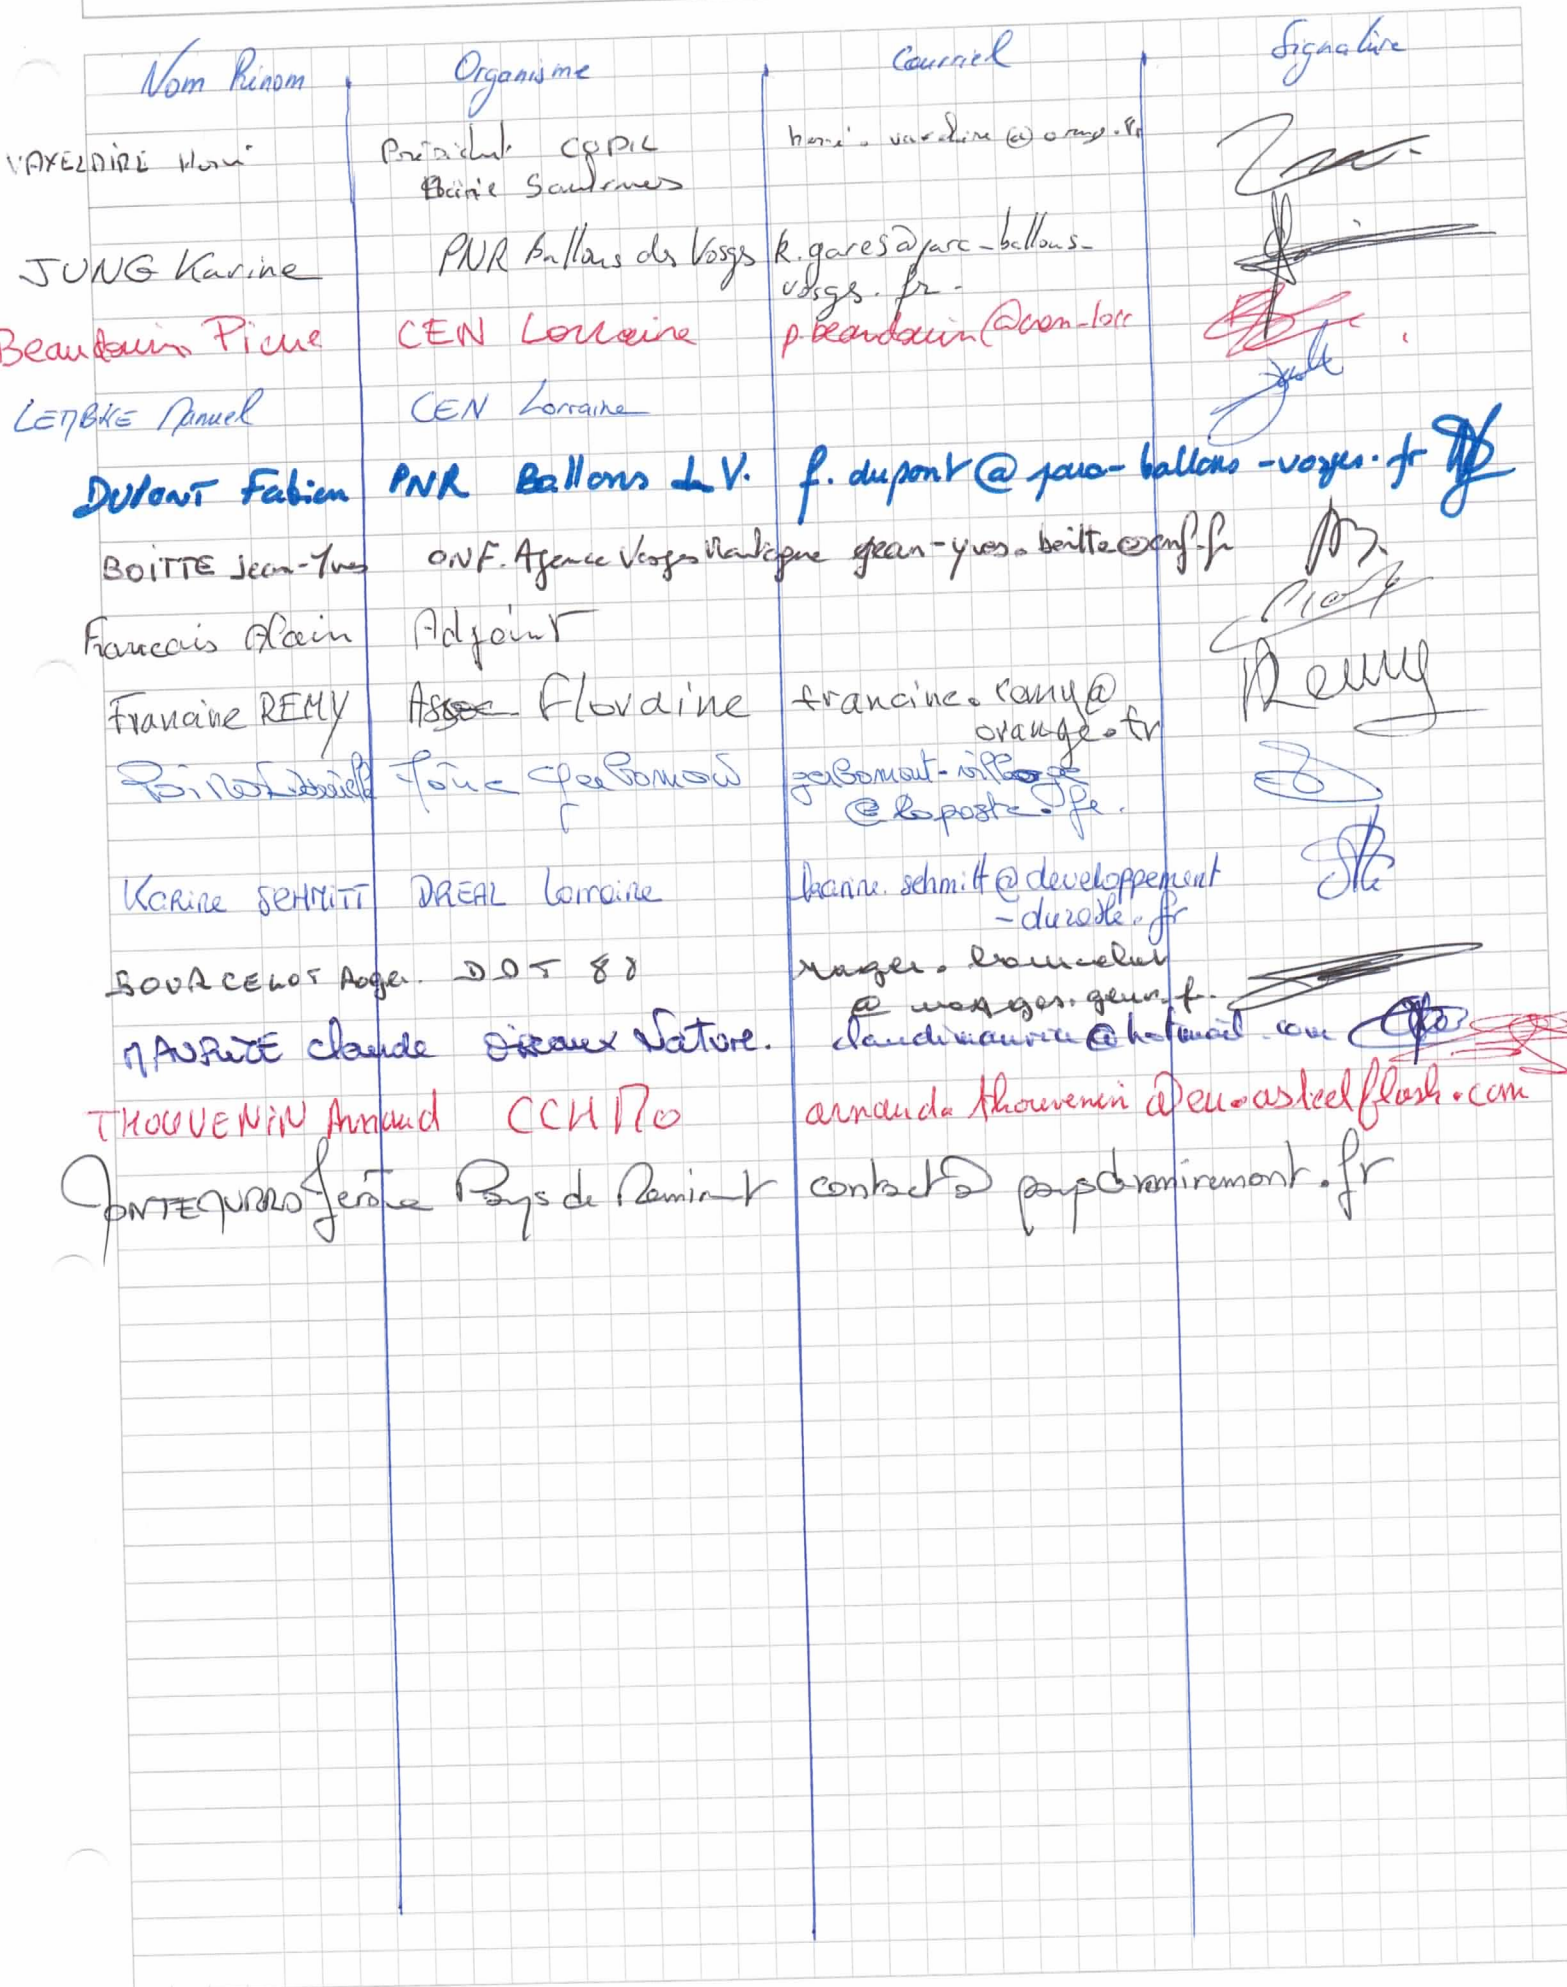 Nom Prénom Organisme Courriel Signature
VAXELAIRE Hervé Président COPIL
Mairie Saulxures
JUNG Karine PNR Ballons des Vosges k.gares@parc-ballons-
vosges.fr.
Beaudouin Pierre CEN Lorraine p.beaudouin@cen-lorr
LEMBKE Manuel CEN Lorraine
DUPONT Fabien PNR Ballons d V. f.dupont@parc-ballons-vosges.fr
BOITTE Jean-Yves ONF. Agence Vosges Montagne jean-yves.boitte@onf.fr
Francais Alain Adjoint
Francine REMY Assoc Floraine francine.remy@
orange.fr
Gerbamont
@laposte.
Karine SCHMITT DREAL Lorraine karine.schmitt@developpement
-durable.fr
BOURCELOT Roger. DDT 88 roger.bourcelot
@vosges.gouv.fr.
MAURICE Claude Oiseaux Nature. @hotmail.com
THOUVENIN Arnaud CCHMo arnaud.thouvenin@eu.asteelflash.com
Jérôme Pays de Remiremont contact@paysderemiremont.fr